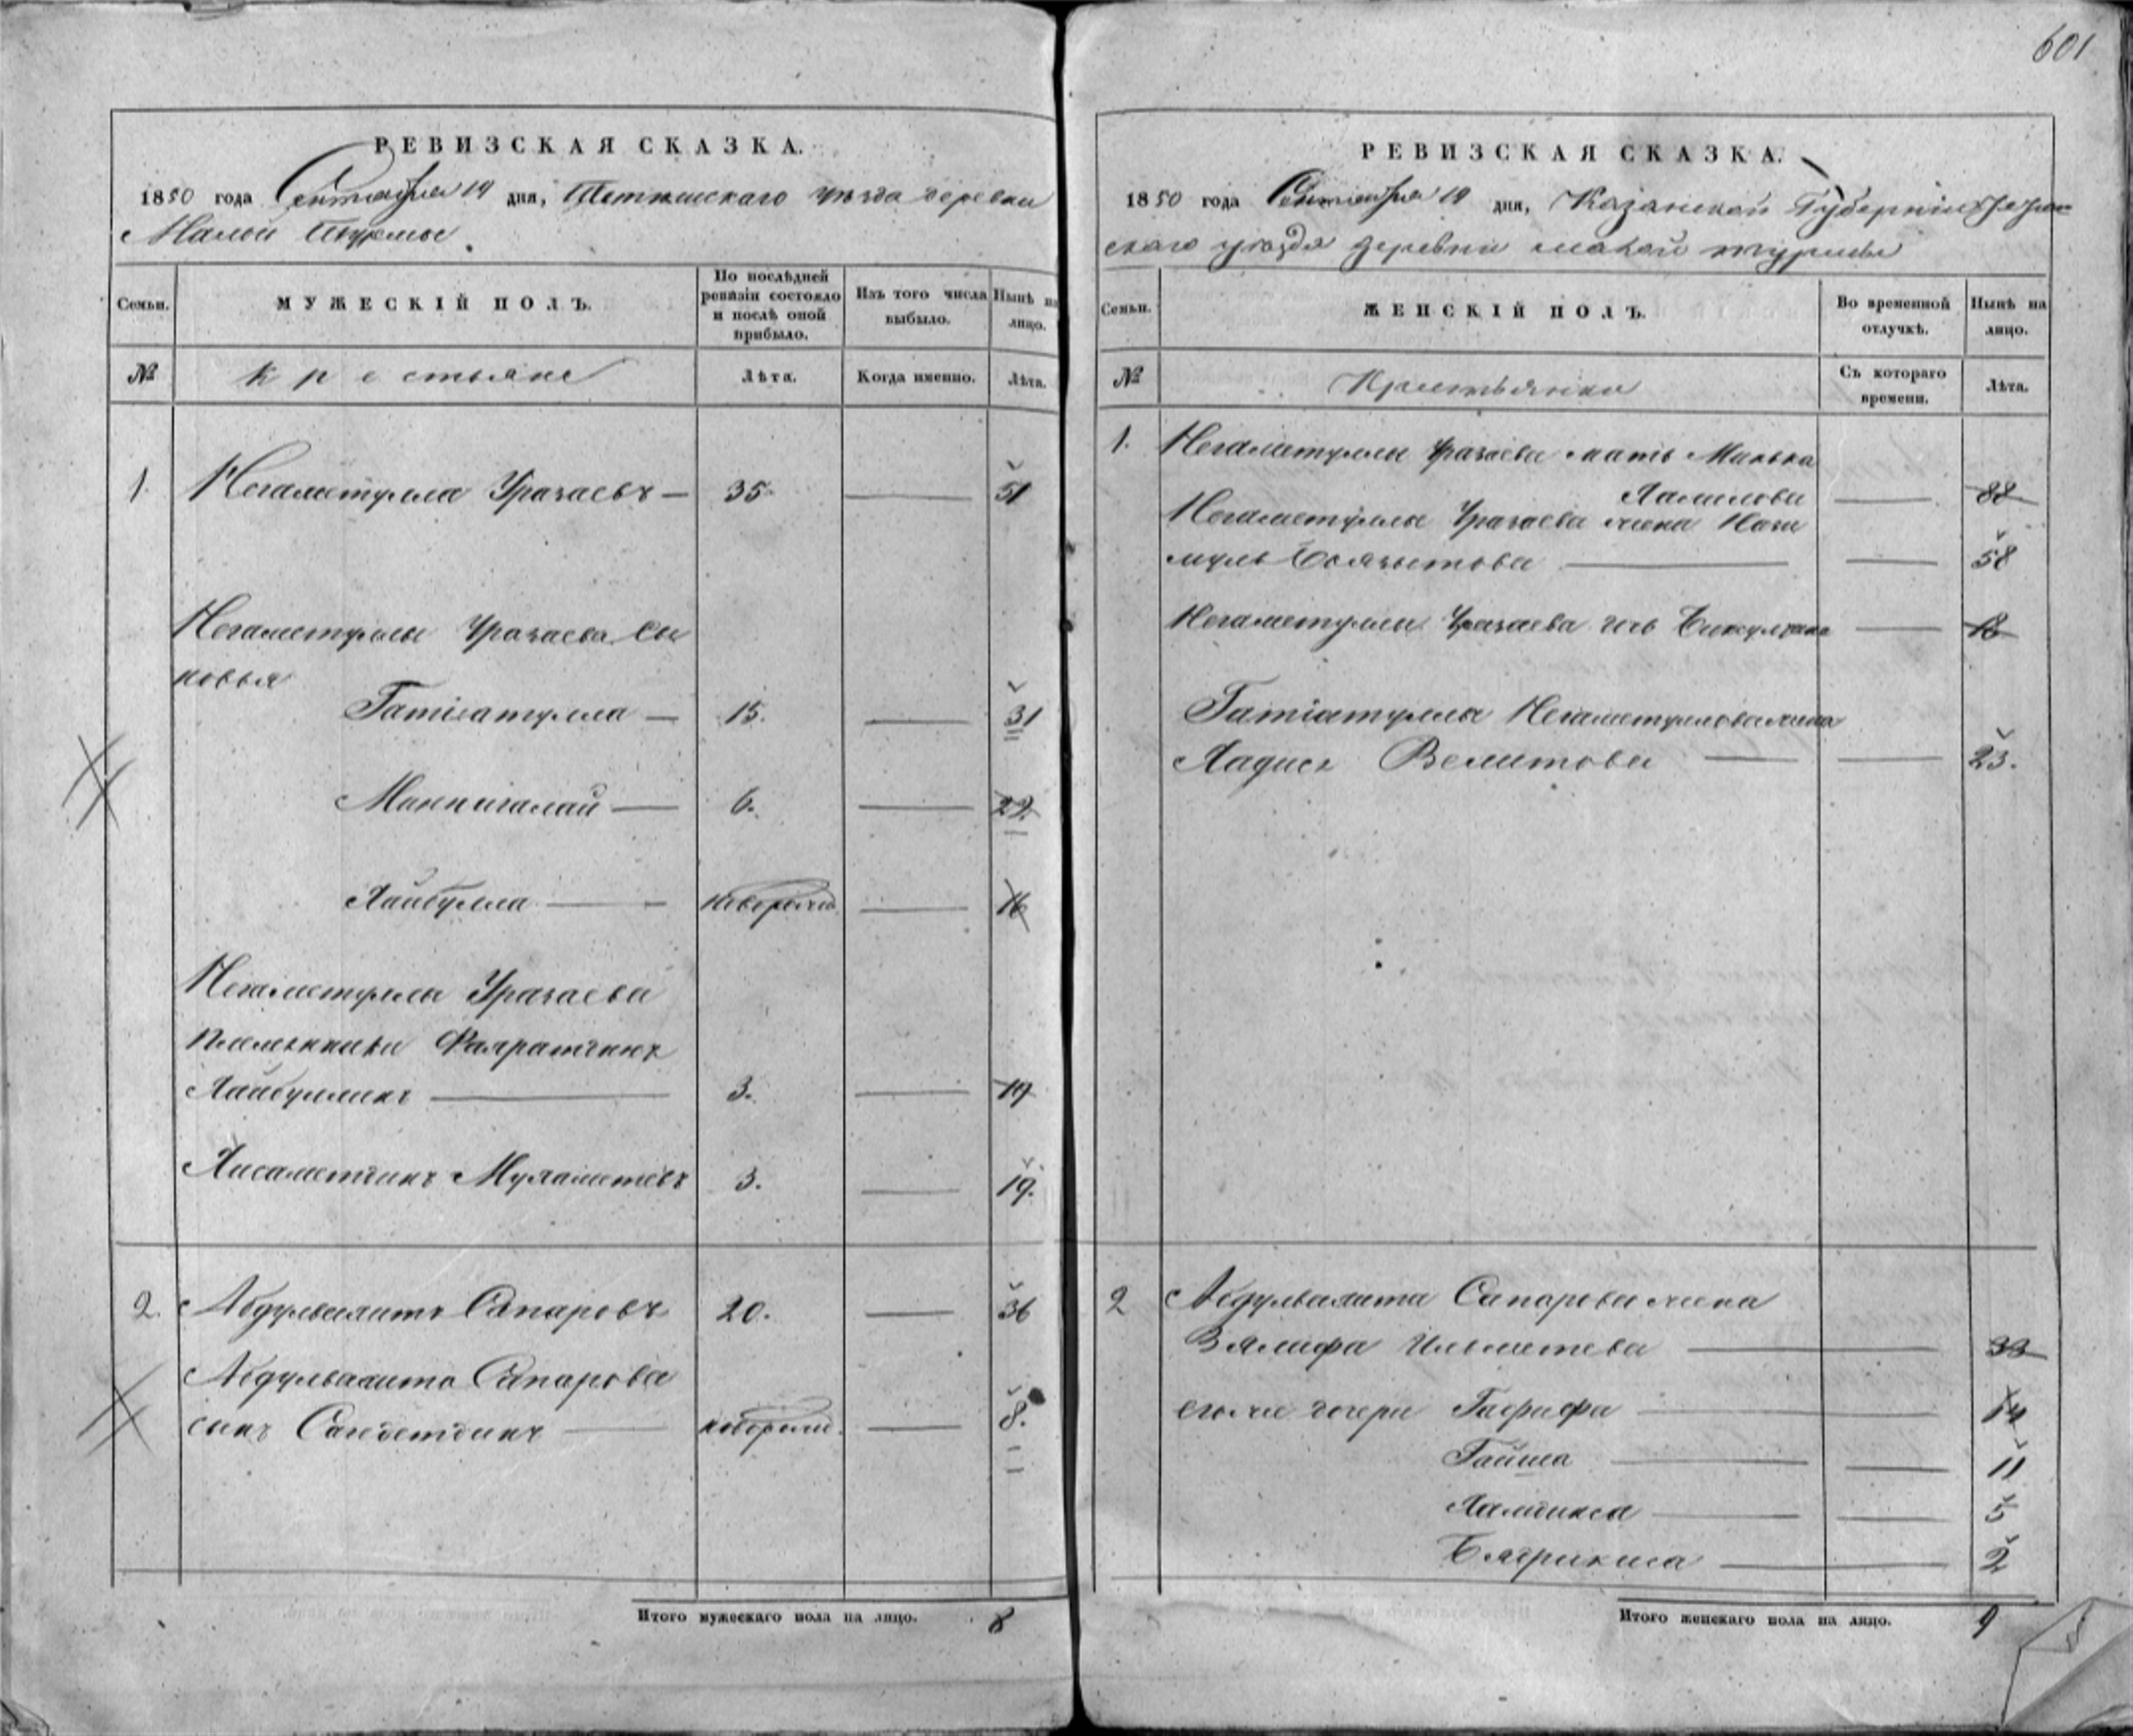 601
РЕВИЗСКАЯ СКАЗКА.
1850 года Сентября 19 дня, Тетюшскаго уѣзда деревни
Малой Турмы.
Семьи.
МУЖЕСКІЙ ПОЛЪ.
По послѣдней ревизіи состояло и послѣ оной прибыло.
Изъ того числа выбыло.
Нынѣ на лицо.
№
крестьяне
Лѣта.
Когда именно.
Лѣта.
1. Негаметулла Уразаевъ — 35. — 51
Негаметуллы Уразаева сы
новья
Гатіатулла — 15. — 31
Миннигалай — 6. — 22
Хайбулла — новорожд. — 16
Негаметуллы Уразаева
племянники
Хайбуллинъ — 3. — 19
Хисаметдинъ Мухаметевъ 3. — 19.
2. Абдулвахитъ Сапаровъ 20. — 36
Абдулвахита Сапарова
сынъ — новорожд. — 8.
Итого мужескаго пола на лицо. 8
РЕВИЗСКАЯ СКАЗКА.
1850 года Сентября 19 дня, Казанской Губерніи
скаго уѣзда деревни малой турмы
Семьи.
ЖЕНСКІЙ ПОЛЪ.
Во временной отлучкѣ.
Нынѣ на лицо.
№
Крестьянки
Съ котораго времени.
Лѣта.
1. Негаметуллы Уразаева мать
Халилова — 88
Негаметуллы Уразаева жена
— 58
Негаметуллы Уразаева — 18
Гатіатуллы Негаметуллова жена
Хадиса — 23.
2 Абдулвахита Сапарова жена
Зялифа — 33
его же дочери Гафифа — 14
Гайша — 11
— 5
— 2
Итого женскаго пола на лицо. 9